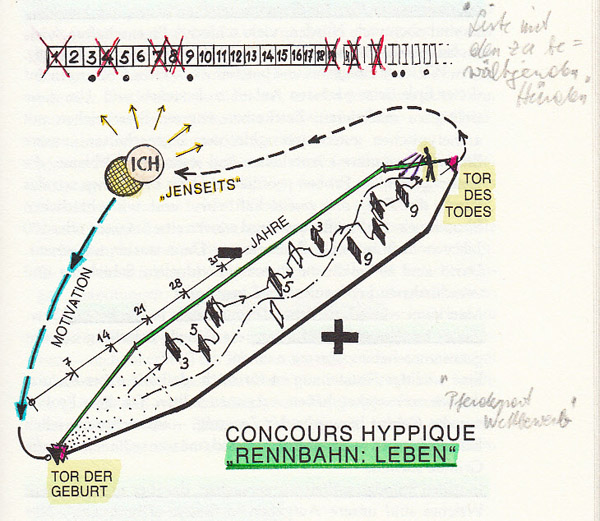 1 2 3 4 5 6 7 8 9 10 11 12 13 14 15 16 17 18 19
"Liste mit
den zu be=
wältigenden
Hürden"
ICH
„JENSEITS“
TOR
DES
TODES
MOTIVATION
7
14
21
28
35
JAHRE
3
5
5
3
9
9
"Pferdesport
Wettbewerb"
CONCOURS HYPPIQUE
„RENNBAHN: LEBEN“
TOR DER
GEBURT